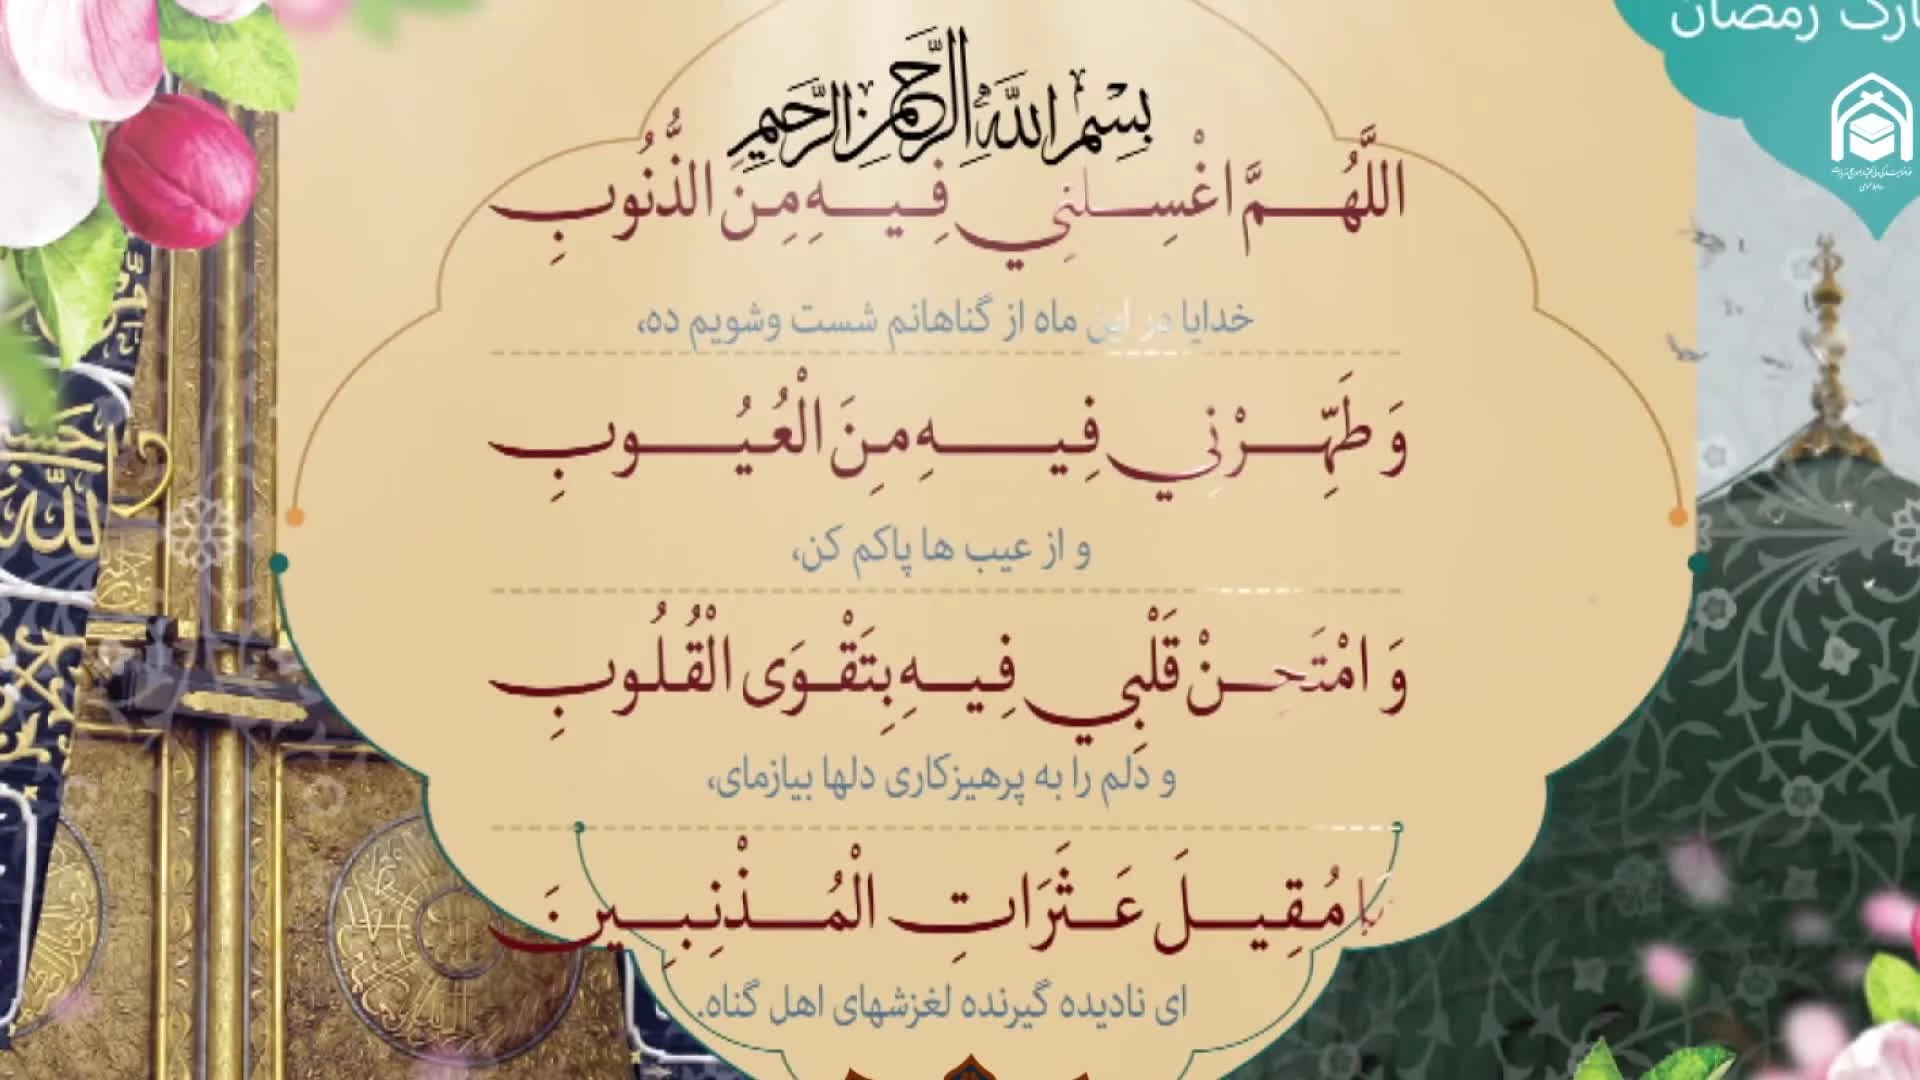 ارک رمضان
بِسْمِ اللَّهِ الرَّحْمنِ الرَّحِيمِ
اللَّهُمَّ اغْسِلْنِي فِيهِ مِنَ الذُّنُوبِ
خدایا در این ماه از گناهانم شست وشویم ده،
وَ طَهِّرْنِي فِيهِ مِنَ الْعُيُوبِ
و از عیب ها پاکم کن،
وَ امْتَحِنْ قَلْبِي فِيهِ بِتَقْوَى الْقُلُوبِ
و دلم را به پرهیزکاری دلها بیازمای،
يَا مُقِيلَ عَثَرَاتِ الْمُذْنِبِينَ
ای نادیده گیرنده لغزشهای اهل گناه.